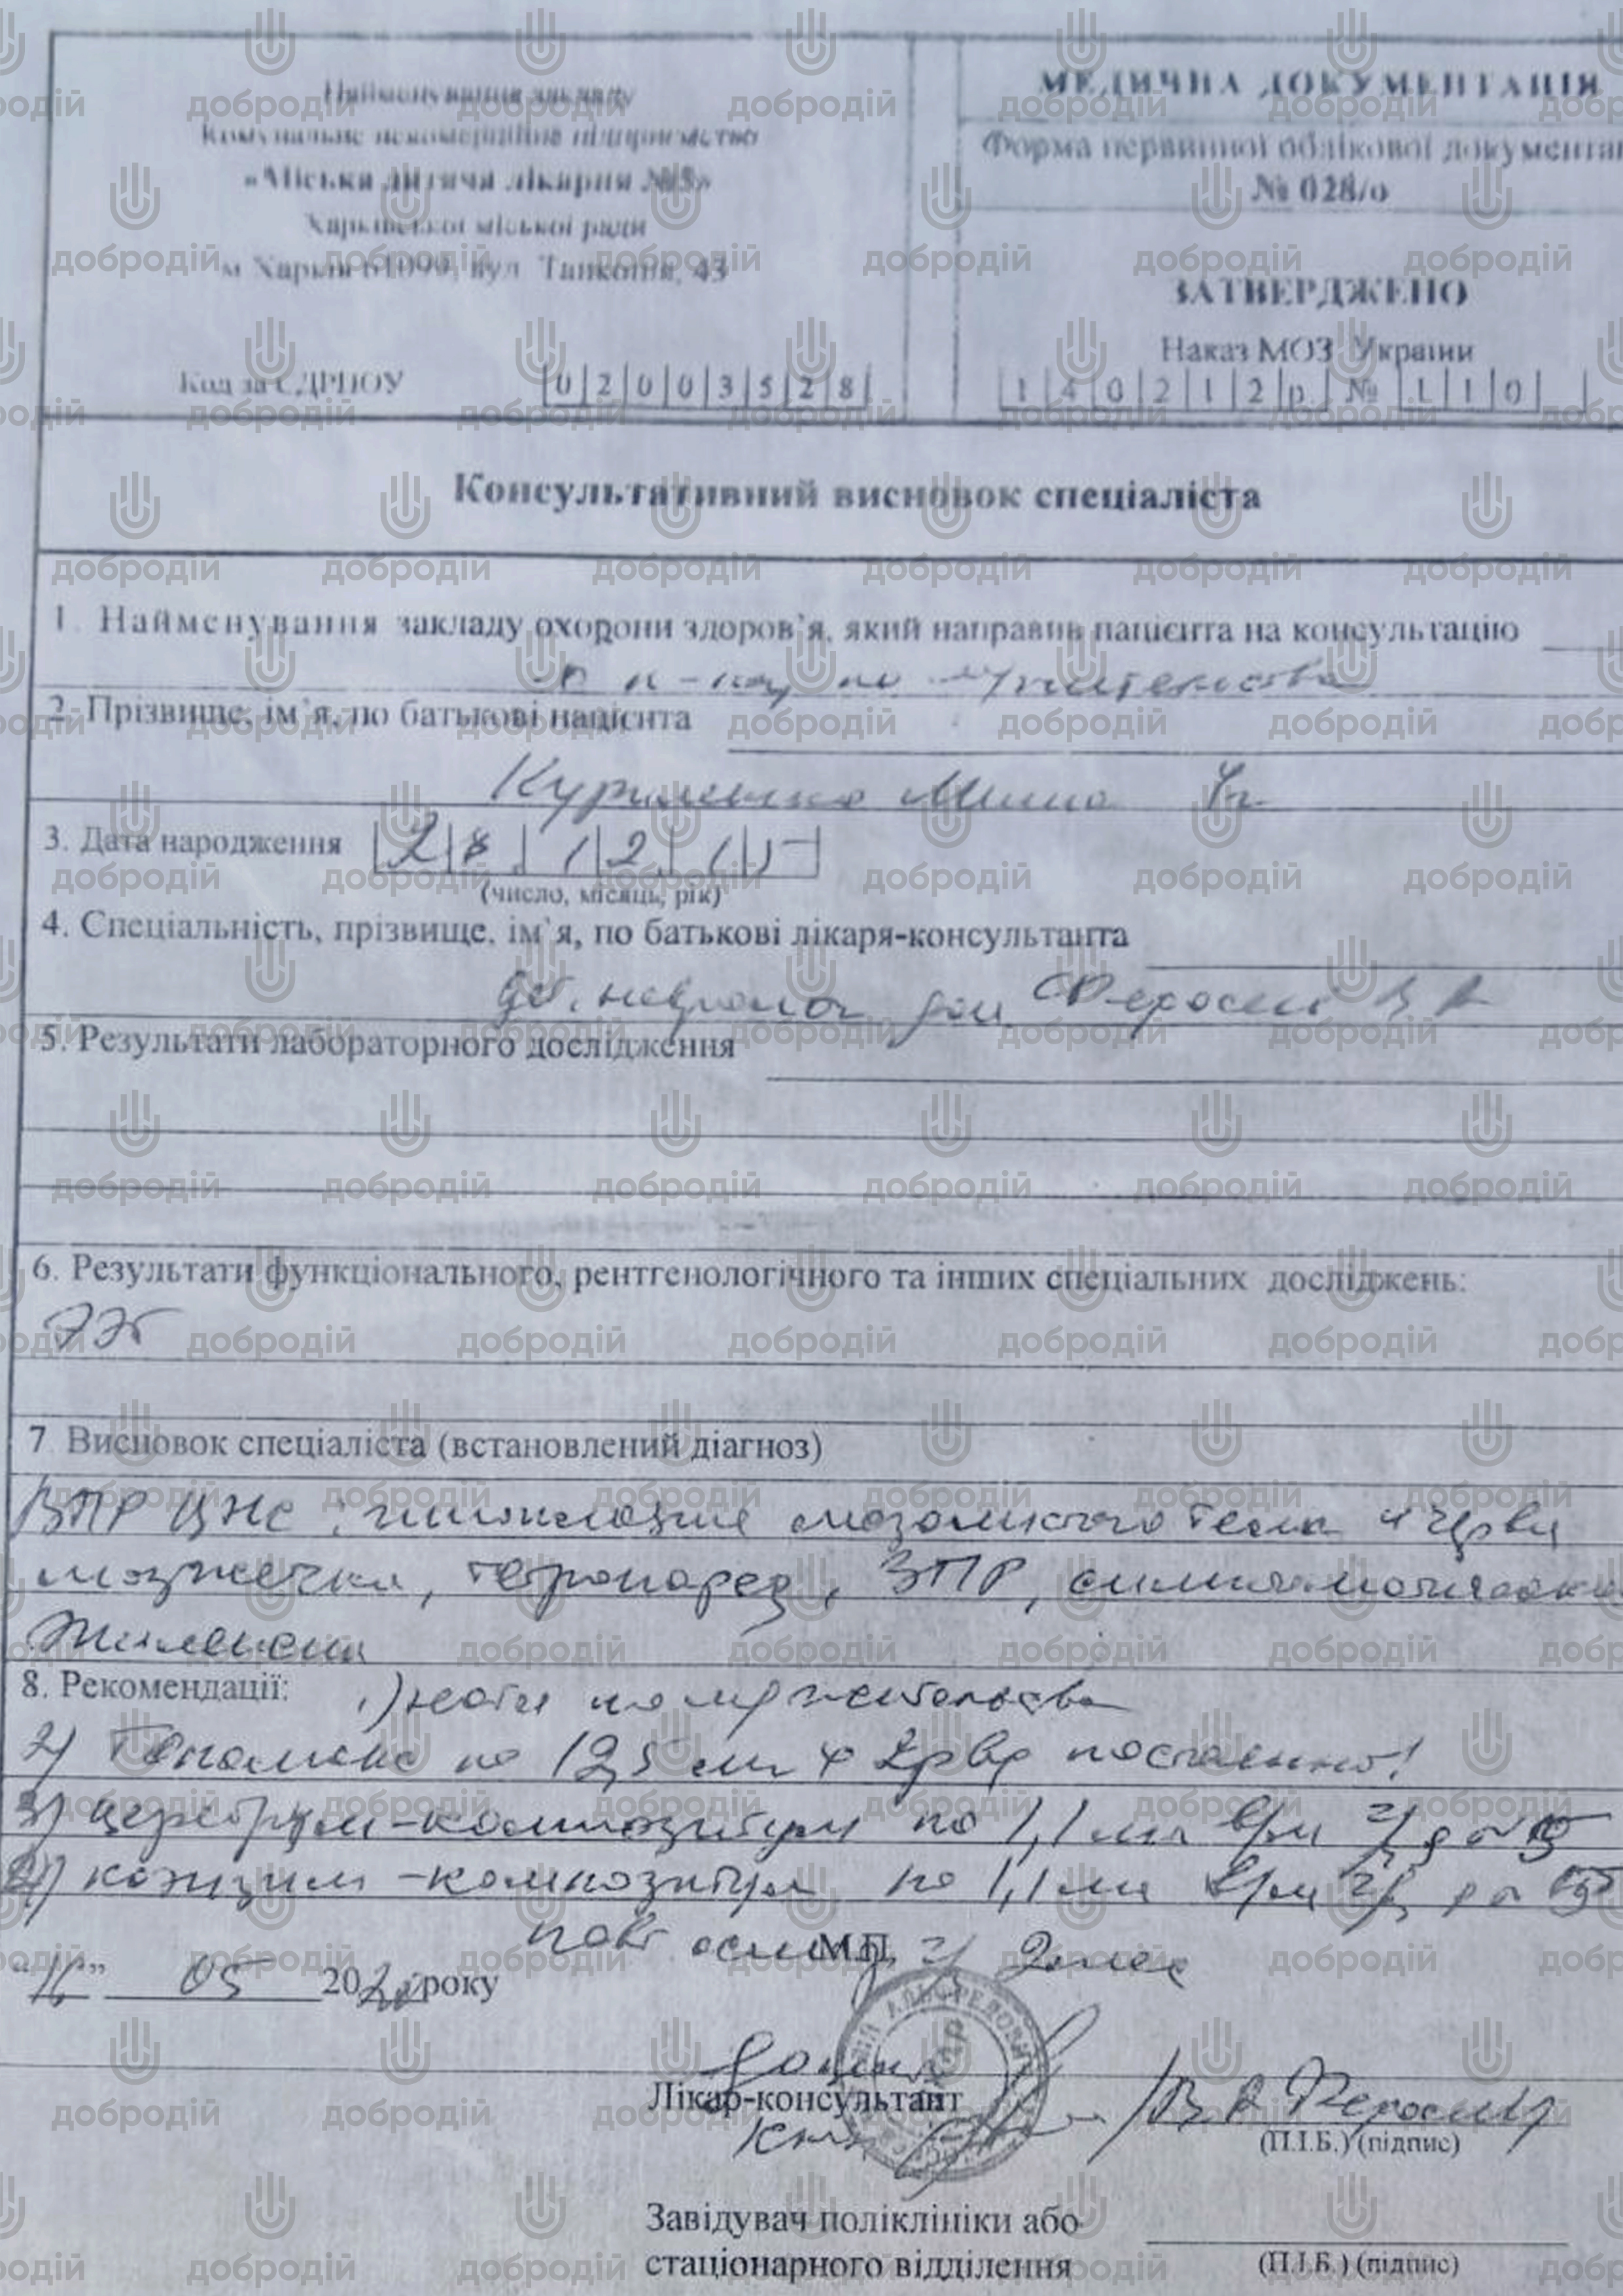 Найменування закладу
Комунальне некомерційне підприємство
«Міська дитяча лікарня №5»
Харківської міської ради
м Харків 61099, вул. Танкопія, 43
Код за ЄДРПОУ 02003528
МЕДИЧНА ДОКУМЕНТАЦІЯ
Форма первинної облікової документа
№ 028/о
ЗАТВЕРДЖЕНО
Наказ МОЗ України
1402120 № 110
Консультативний висновок спеціаліста
1. Найменування закладу охорони здоров’я, який направив пацієнта на консультацію
2. Прізвище, ім’я, по батькові пацієнта
4г
3. Дата народження 28 12 15
(число, місяць, рік)
4. Спеціальність, прізвище, ім’я, по батькові лікаря-консультанта
дет. невролог доц.
5. Результати лабораторного дослідження
6. Результати функціонального, рентгенологічного та інших спеціальних досліджень:
ЭЭГ
7 Висновок спеціаліста (встановлений діагноз)
ВПР ЦНС: гипоплазия мозолистого тела и червя
мозжечка, тетрапарез, ЗПР,
эпилепсия
8. Рекомендації: 1) по м/жительства
2) Топамакс по 12,5 мг х 2р постоянно!
3) церебрум-композитум по 1,1 мл в/м
4) коэнзим-композитум по 1,1 мл в/м
повт осмотр 2 мес
М.П.
“16” 05 2020 року
доцент
Лікар-консультант
(П.І.Б.) (підпис)
Завідувач поліклініки або
стаціонарного відділення
(П.І.Б.) (підпис)
добродій